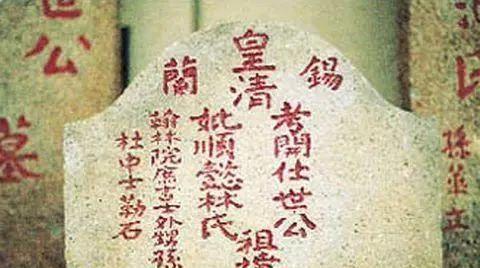 氏
孫並立
錫蘭
皇清
考開仕世公
妣順懿林氏
祖
翰林院庶吉士外甥孫
杜中士勒石
世公
墓